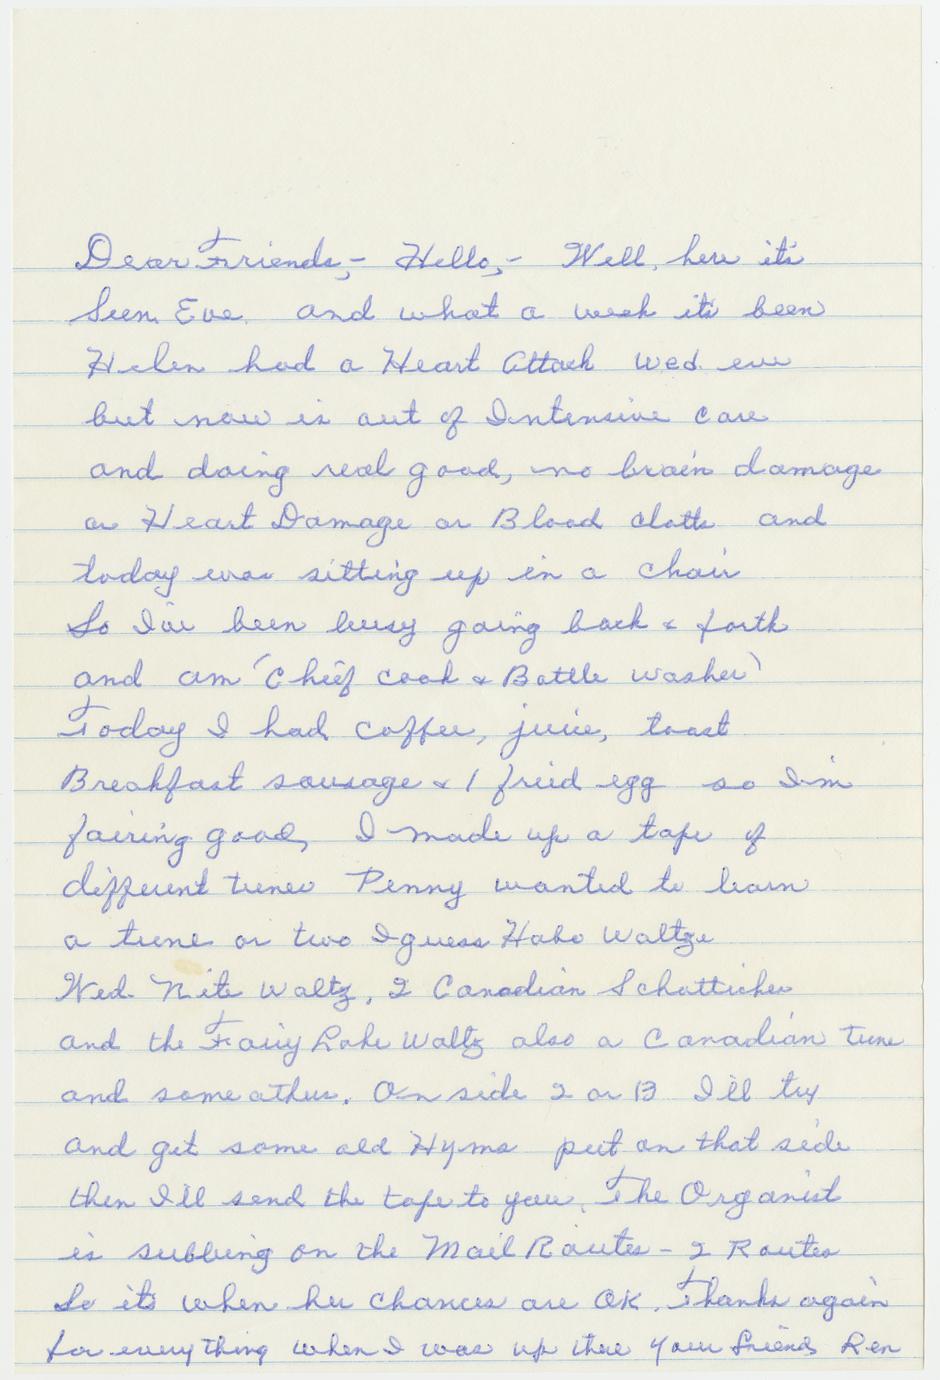 Dear Friends,- Hello,- Well, here it's
Sun. Eve. and what a week it's been
Helen had a Heart Attack Wed. eve
but now is out of Intensive care
and doing real good, no brain damage
or Heart Damage or Blood clotts and
today was sitting up in a chair
So I've been busy going back & forth
and am "Chief cook & Bottle washer"
Today I had coffee, juice, toast
Breakfast sausage & 1 fried egg so I'm
fairing good, I made up a tape of
different tunes Penny wanted to learn
a tune or two I guess Hobo Waltze
Wed. Nite Waltz, 2 Canadian Schottiches
and the Fairy Lake Waltz also a Canadian tune
and some other. On side 2 or B I'll try
and get some old Hyms put on that side
then I'll send the tape to you. The Organist
is subbing on the Mail Routes - 2 Routes
So it's when her chances are OK. Thanks again
for everything when I was up there your friend Ren